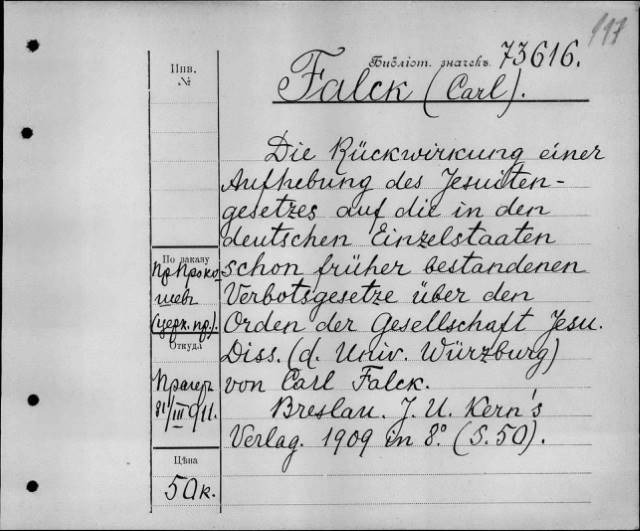 117
Библіот. значекъ 73616.
Falck (Carl).
Инв.
№
Die Rückwirkung einer
Aufhebung des Jesuiten-
gesetzes auf die in den
deutschen Einzelstaaten
schon früher bestandenen
Verbotsgesetze über den
Orden der Gesellschaft Jesu.
Diss. (d. Univ. Würzburg)
von Carl Falck.
Breslau. J. U. Kern's
Verlag. 1909 in 8º. (S. 50).
По заказу
Пр. Проко-
шевъ
(церк. пр.).
Откуда
Прагеръ
31/III 911.
Цѣна
50 к.